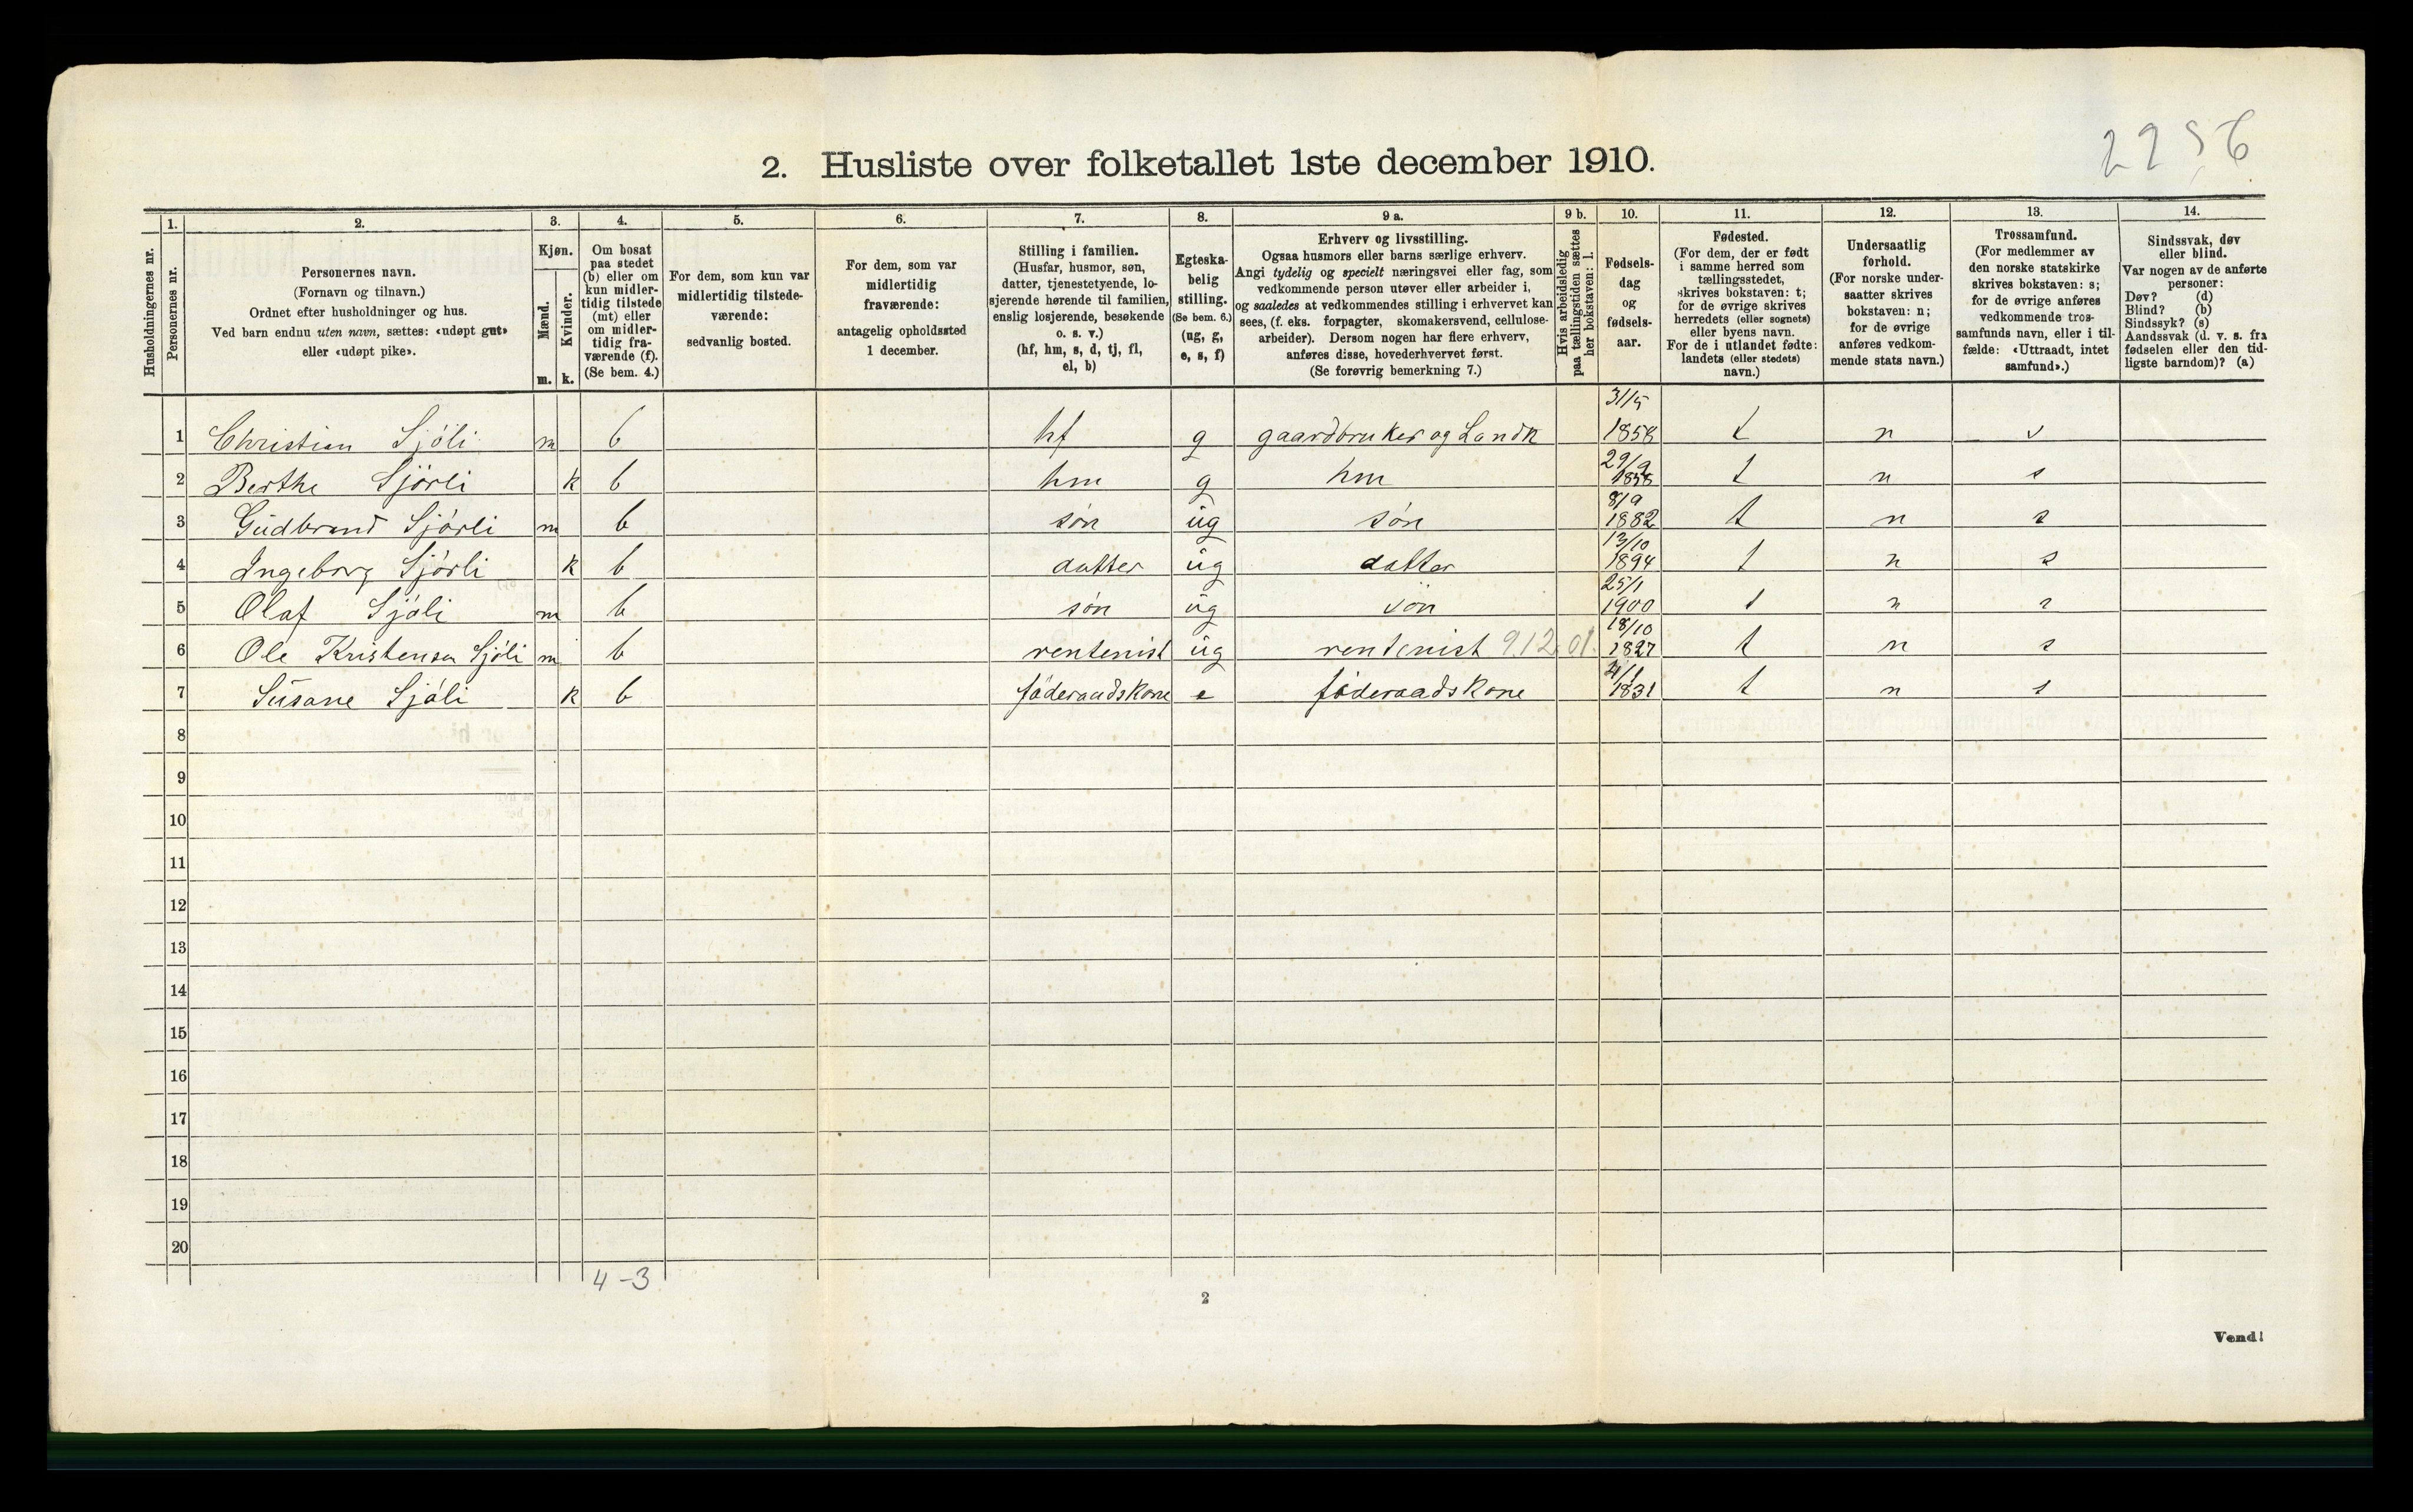 2256
2. Husliste over folketallet 1ste december 1910.
1. 2. 3. 4. 5. 6. 7. 8. 9 a. 9 b. 10. 11. 12. 13. 14.
Husholdningernes nr.
Personernes nr.
Personernes navn.
(Fornavn og tilnavn.)
Ordnet efter husholdninger og hus.
Ved barn endnu uten navn, sættes: «udøpt gut»
eller «udøpt pike».
Kjøn.
Mænd.
Kvinder.
m. k.
Om bosat
paa stedet
(b) eller om
kun midler-
tidig tilstede
(mt) eller
om midler-
tidig fra-
værende (f).
(Se bem. 4.)
For dem, som kun var
midlertidig tilstede-
værende:
sedvanlig bosted.
For dem, som var
midlertidig
fraværende:
antagelig opholdssted
1 december.
Stilling i familien.
(Husfar, husmor, søn,
datter, tjenestetyende, lo-
sjerende hørende til familien,
enslig losjerende, besøkende
o. s. v.)
(hf, hm, s, d, tj, fl,
el, b)
Egteska-
belig
stilling.
(Se bem. 6.)
(ug, g,
e, s, f)
Erhverv og livsstilling.
Ogsaa husmors eller barns særlige erhverv.
Angi tydelig og specielt næringsvei eller fag, som
vedkommende person utøver eller arbeider i,
og saaledes at vedkommendes stilling i erhvervet kan
sees, (f. eks. forpagter, skomakersvend, cellulose-
arbeider). Dersom nogen har flere erhverv,
anføres disse, hovederhvervet først.
(Se forøvrig bemerkning 7.)
Hvis arbeidsledig
paa tællingstiden sættes
her bokstaven: l.
Fødsels-
dag
og
fødsels-
aar.
Fødested.
(For dem, der er født
i samme herred som
tællingsstedet,
skrives bokstaven: t;
for de øvrige skrives
herredets (eller sognets)
eller byens navn.
For de i utlandet fødte:
landets (eller stedets)
navn.)
Undersaatlig
forhold.
(For norske under-
saatter skrives
bokstaven: n;
for de øvrige
anføres vedkom-
mende stats navn.)
Trossamfund.
(For medlemmer av
den norske statskirke
skrives bokstaven: s;
for de øvrige anføres
vedkommende tros-
samfunds navn, eller i til-
fælde: «Uttraadt, intet
samfund».)
Sindssvak, døv
eller blind.
Var nogen av de anførte
personer:
Døv? (d)
Blind? (b)
Sindssyk? (s)
Aandssvak (d. v. s. fra
fødselen eller den tid-
ligste barndom)? (a)
1 Christian Sjöli m b hf g gaardbruker og Landh 31/5 1858 t n s
2 Berthe Sjörli k b hm g hm 29/9 1858 t n s
3 Gudbrand Sjörli m b søn ug søn 8/9 1882 t n s
4 Ingeborg Sjörli k b datter ug datter 13/10 1894 t n s
5 Olaf Sjöli m b søn ug søn 25/1 1900 t n s
6 Ole Kristensen Sjöli m b rentenist ug rentenist 912.01. 18/10 1827 t n s
7 Susane Sjöli k b föderaadskone e föderaadskone 4/1 1831 t n s
8
9
10
11
12
13
14
15
16
17
18
19
20
4-3
2
Vend!